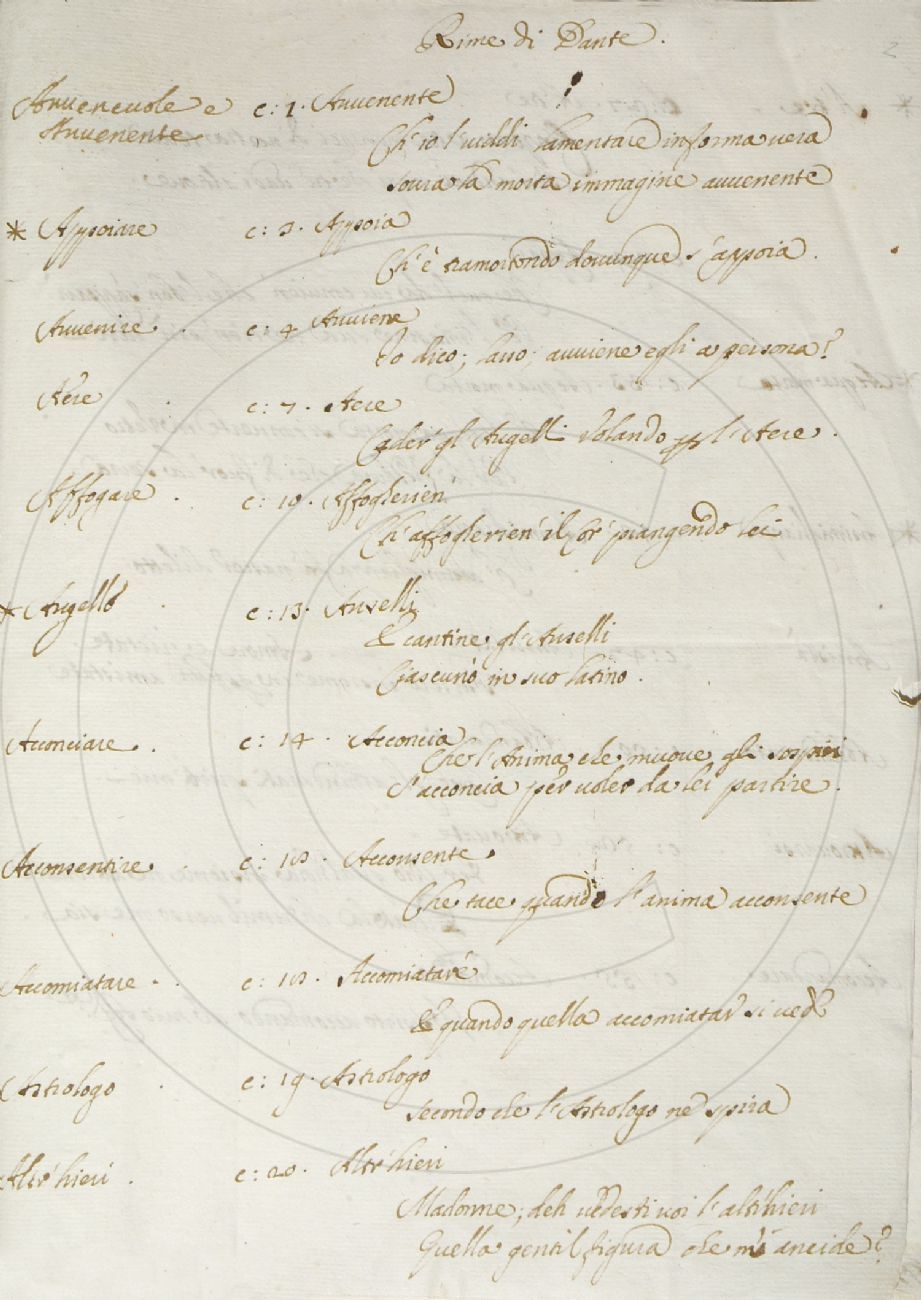 Rime di Dante.
2
Avvenevole e c: 1. Avvenente
Avvenente
Ch'io l'viddi lamentare in forma vera
sovra la morta immagine avvenente
* Appoiare c: 3. Appoia
Ch'è tramortendo dovunque s'appoia.
Avvenire. c: 4 Avviene
Io dico; lasso; avviene egli a persona?
Aere c: 7. Aere
Cader gl'Augelli volando p l'Aere.
Affogare. c: 10. Affoglierien
Ch'affoglierien' il Cor' piangendo lei
* Augello c: 13. Auselli
E cantine gl'Auselli
Ciascuno in suo latino.
Acconciare. c: 14. Acconcia
Che l'Anima che muove gli sospiri
S'acconcia per voler da lei partire.
Acconsentire c: 18. Acconsente.
Che tace quando l'anima acconsente
Accomiatare. c: 18. Accomiatare
E quando quella accomiatar si vede
Astrologo. c: 19. Astrologo
secondo che l'Astrologo ne spira
Altr'hieri. c: 20. Altr'hieri
Madonne; deh vedesti voi l'altr'hieri
Quella gentil figura che m'ancide?